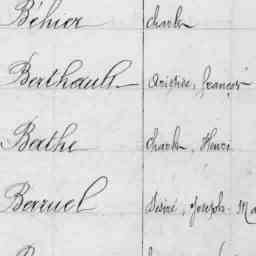 Béhier Charles
Berthault François
Barthe Charles, Henri
Barruel Désiré, Joseph, Ma